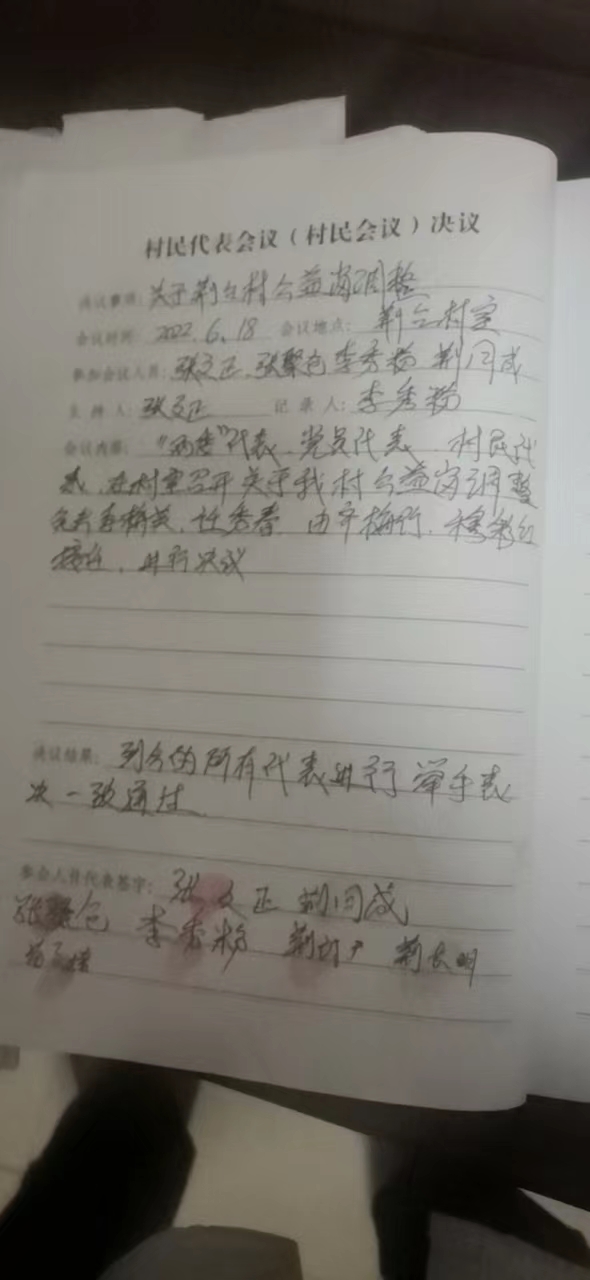 村民代表会议（村民会议）决议
决议事项：关于荆台村公益岗调整
会议时间：2022.6.18 会议地点：荆台村室
参加会议人员：张文正 张聚仓 李秀粉 荆同成
主持人：张文正 记录人：李秀粉
会议内容："两委"代表、党员代表、村民代
表，在村室召开关于我村公益岗调整
任秀春，由 梅竹、
接任，进行决议
决议结果：到会的所有代表进行举手表
决一致通过
参会人员代表签字：张文正 荆同成
张聚仓 李秀粉 荆长明